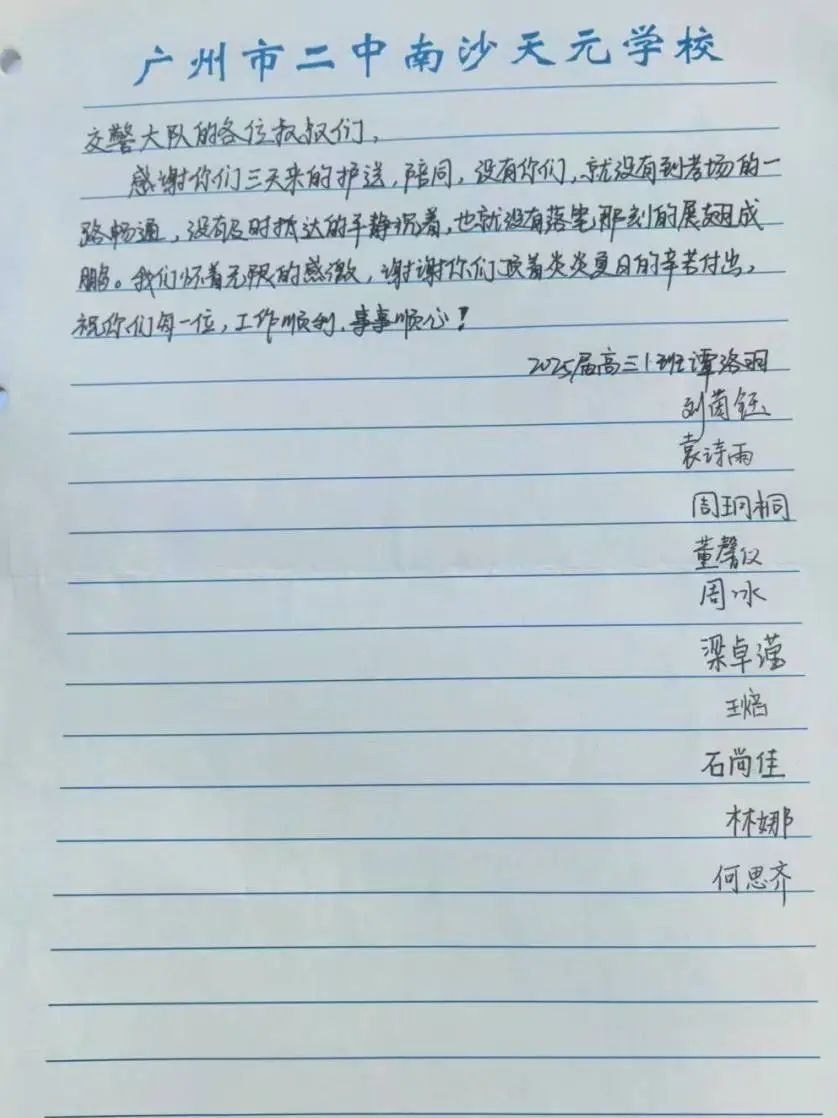 广州市二中南沙天元学校
交警大队的各位叔叔们，
感谢你们三天来的护送，陪同，没有你们，就没有到考场的一
路畅通，没有及时抵达的平静沉着，也就没有落笔那刻的展翅成
鹏。我们怀着无限的感激，谢谢你们顶着炎炎夏日的辛苦付出，
祝你们每一位，工作顺利，事事顺心！
2025届高三1班谭洛羽
刘茵钰
袁诗雨
周玥桐
董馨仪
周冰
梁卓滢
王焰
石尚佳
林娜
何思齐